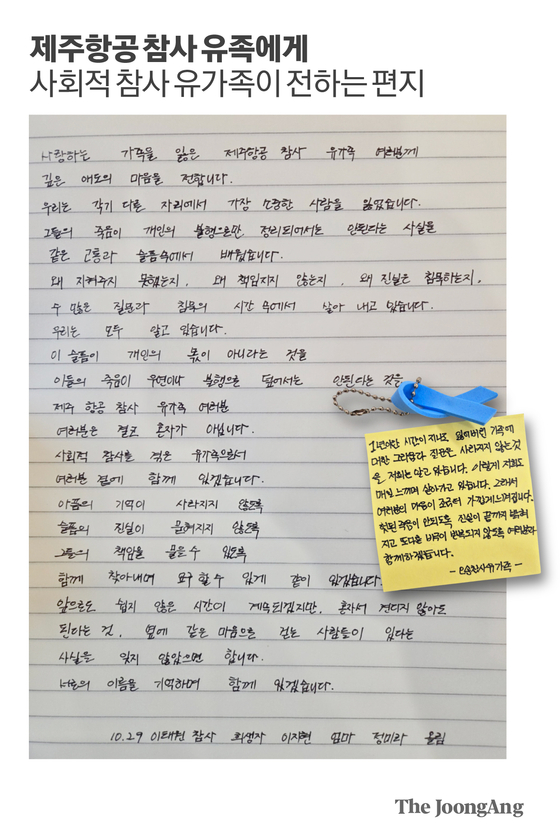 제주항공 참사 유족에게
사회적 참사 유가족이 전하는 편지
사랑하는 가족을 잃은 제주항공 참사 유가족 여러분께
깊은 애도의 마음을 전합니다.
우리는 각기 다른 자리에서 가장 소중한 사람을 잃었습니다.
그들의 죽음이 개인의 불행으로만 정리되어서는 안된다는 사실을
같은 고통과 슬픔속에서 배웠습니다.
왜 지켜주지 못했는지, 왜 책임지지 않는지, 왜 진실은 침묵하는지,
수 많은 질문과 침묵의 시간 속에서 살아 내고 있습니다.
우리는 모두 알고 있습니다.
이 슬픔이 개인의 몫이 아니라는 것을
이들의 죽음이 우연이나 불행으로 덮어서는 안된다는 것을
제주 항공 참사 유가족 여러분
여러분은 결코 혼자가 아닙니다.
사회적 참사를 겪은 유가족으로서
여러분 곁에 함께 있겠습니다.
아픔의 기억이 사라지지 않도록
슬픔의 진실이 묻혀지지 않도록
그들의 책임을 물을 수 있도록
함께 찾아내며 요구 할 수 있게 같이 있겠습니다.
앞으로도 쉽지 않은 시간이 계속되겠지만, 혼자서 견디지 않아도
된다는 것, 옆에 같은 마음으로 걷는 사람들이 있다는
사실을 잊지 않았으면 합니다.
서로의 이름을 기억하며 함께 있겠습니다.
10.29 이태원 참사 희생자 이지현 엄마 정미라 올림
1년이란 시간이 지나도 잃어버린 가족에
대한 그리움과 질문은 사라지지 않는 것
을 저희는 알고 있습니다. 이렇게 저희도
매일 느끼며 살아가고 있습니다. 그래서
여러분의 마음이 조금더 가깝게느껴집니다.
헛된 죽음이 안되도록 진실이 끝까지 밝혀
지고 또다른 비극이 반복되지 않도록 여러분과
함께하겠습니다.
- 오송참사유가족 -
The JoongAng